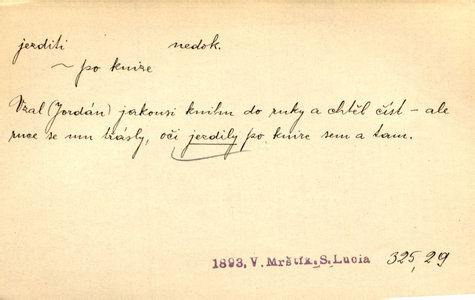 jezditi nedok.
~ po knize
Vzal (Jordán) jakousi knihu do ruky a chtěl číst – ale
ruce se mu třásly, oči jezdily po knize sem a tam.
1893, V. Mrštík, S. Lucia 325, 29